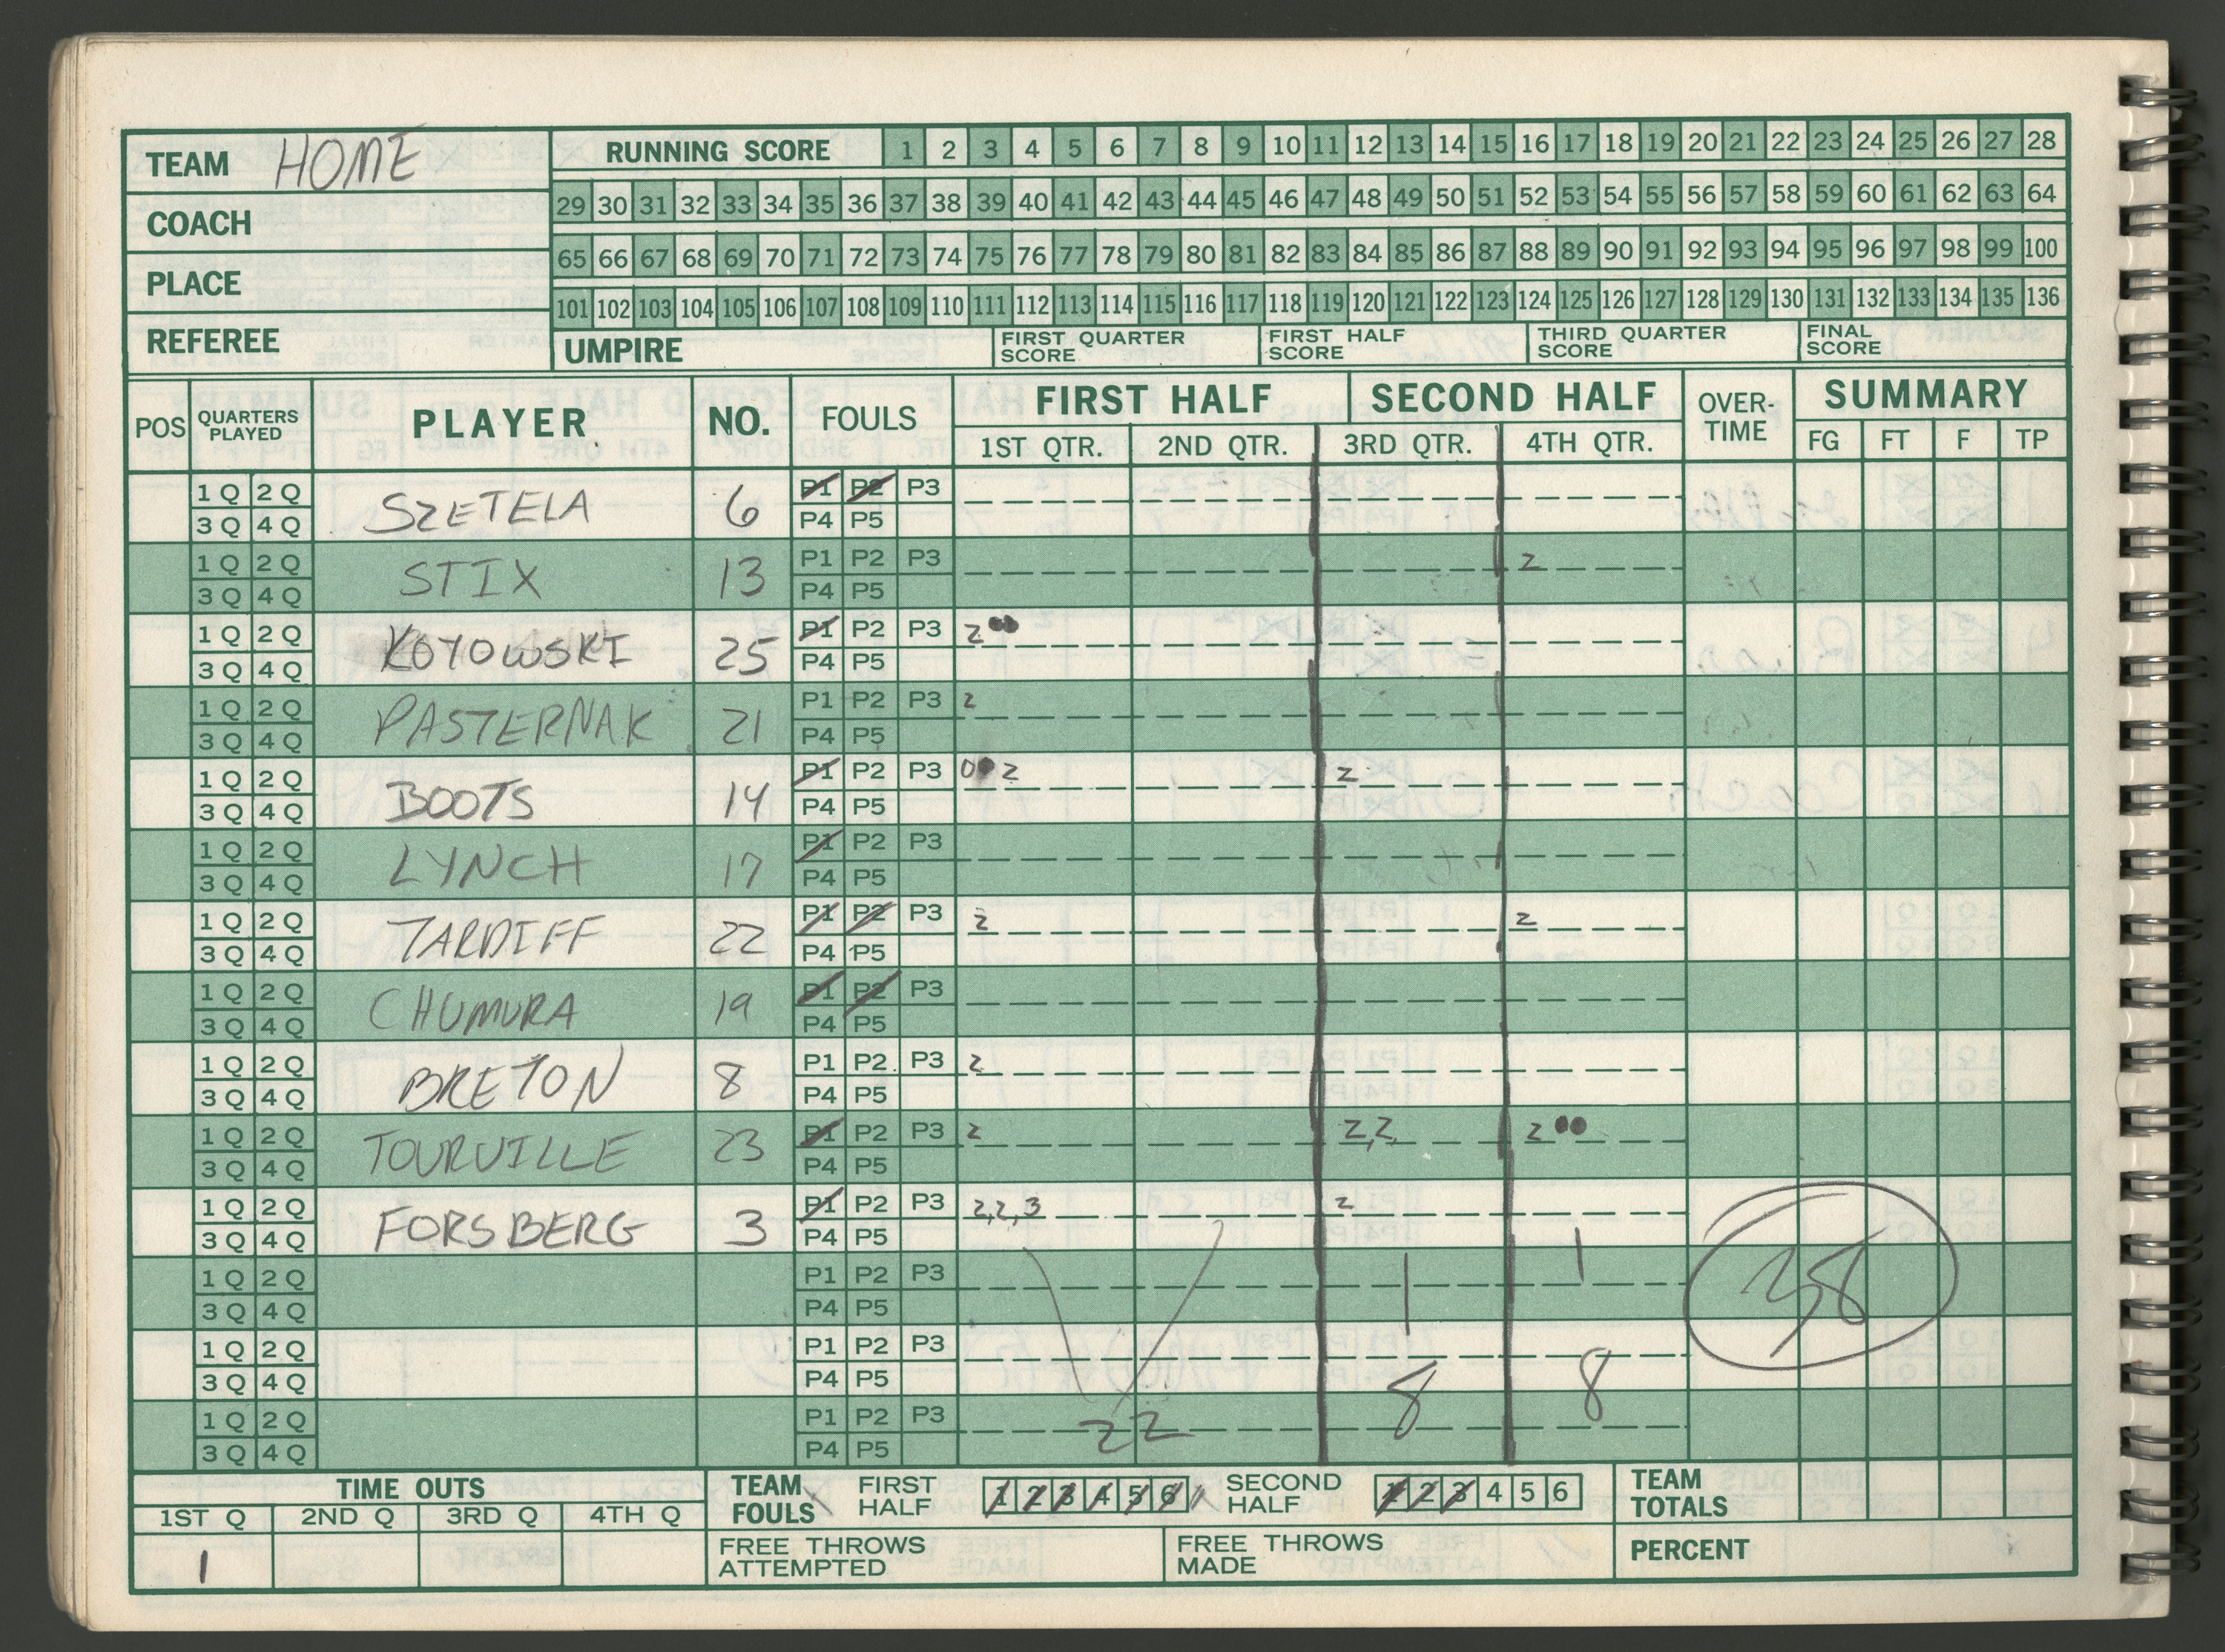 TEAM HOME
COACH
PLACE
REFEREE
RUNNING SCORE 1 2 3 4 5 6 7 8 9 10 11 12 13 14 15 16 17 18 19 20 21 22 23 24 25 26 27 28
29 30 31 32 33 34 35 36 37 38 39 40 41 42 43 44 45 46 47 48 49 50 51 52 53 54 55 56 57 58 59 60 61 62 63 64
65 66 67 68 69 70 71 72 73 74 75 76 77 78 79 80 81 82 83 84 85 86 87 88 89 90 91 92 93 94 95 96 97 98 99 100
101 102 103 104 105 106 107 108 109 110 111 112 113 114 115 116 117 118 119 120 121 122 123 124 125 126 127 128 129 130 131 132 133 134 135 136
UMPIRE FIRST QUARTER SCORE FIRST HALF SCORE THIRD QUARTER SCORE FINAL SCORE
POS QUARTERS PLAYED PLAYER NO. FOULS FIRST HALF SECOND HALF OVER-TIME SUMMARY
1ST QTR. 2ND QTR. 3RD QTR. 4TH QTR. FG FT F TP
1 Q 2 Q SZETELA 6 P1 P2 P3
3 Q 4 Q P4 P5
1 Q 2 Q STIX 13 P1 P2 P3 2
3 Q 4 Q P4 P5
1 Q 2 Q KOYOWSKI 25 P1 P2 P3 2
3 Q 4 Q P4 P5
1 Q 2 Q PASTERNAK 21 P1 P2 P3 2
3 Q 4 Q P4 P5
1 Q 2 Q BOOTS 14 P1 P2 P3 0 2 2
3 Q 4 Q P4 P5
1 Q 2 Q LYNCH 17 P1 P2 P3
3 Q 4 Q P4 P5
1 Q 2 Q TARDIFF 22 P1 P2 P3 2 2
3 Q 4 Q P4 P5
1 Q 2 Q CHUMURA 19 P1 P2 P3
3 Q 4 Q P4 P5
1 Q 2 Q BRETON 8 P1 P2 P3 2
3 Q 4 Q P4 P5
1 Q 2 Q TOURVILLE 23 P1 P2 P3 2 2,2 2
3 Q 4 Q P4 P5
1 Q 2 Q FORSBERG 3 P1 P2 P3 2,2,3 2
3 Q 4 Q P4 P5
1 Q 2 Q P1 P2 P3
3 Q 4 Q P4 P5
38
1 Q 2 Q P1 P2 P3
3 Q 4 Q P4 P5
1 Q 2 Q P1 P2 P3 22 8 8
3 Q 4 Q P4 P5
TIME OUTS
1ST Q 2ND Q 3RD Q 4TH Q
1
TEAM FOULS FIRST HALF 1 2 3 4 5 6 SECOND HALF 1 2 3 4 5 6
FREE THROWS ATTEMPTED FREE THROWS MADE
TEAM TOTALS
PERCENT